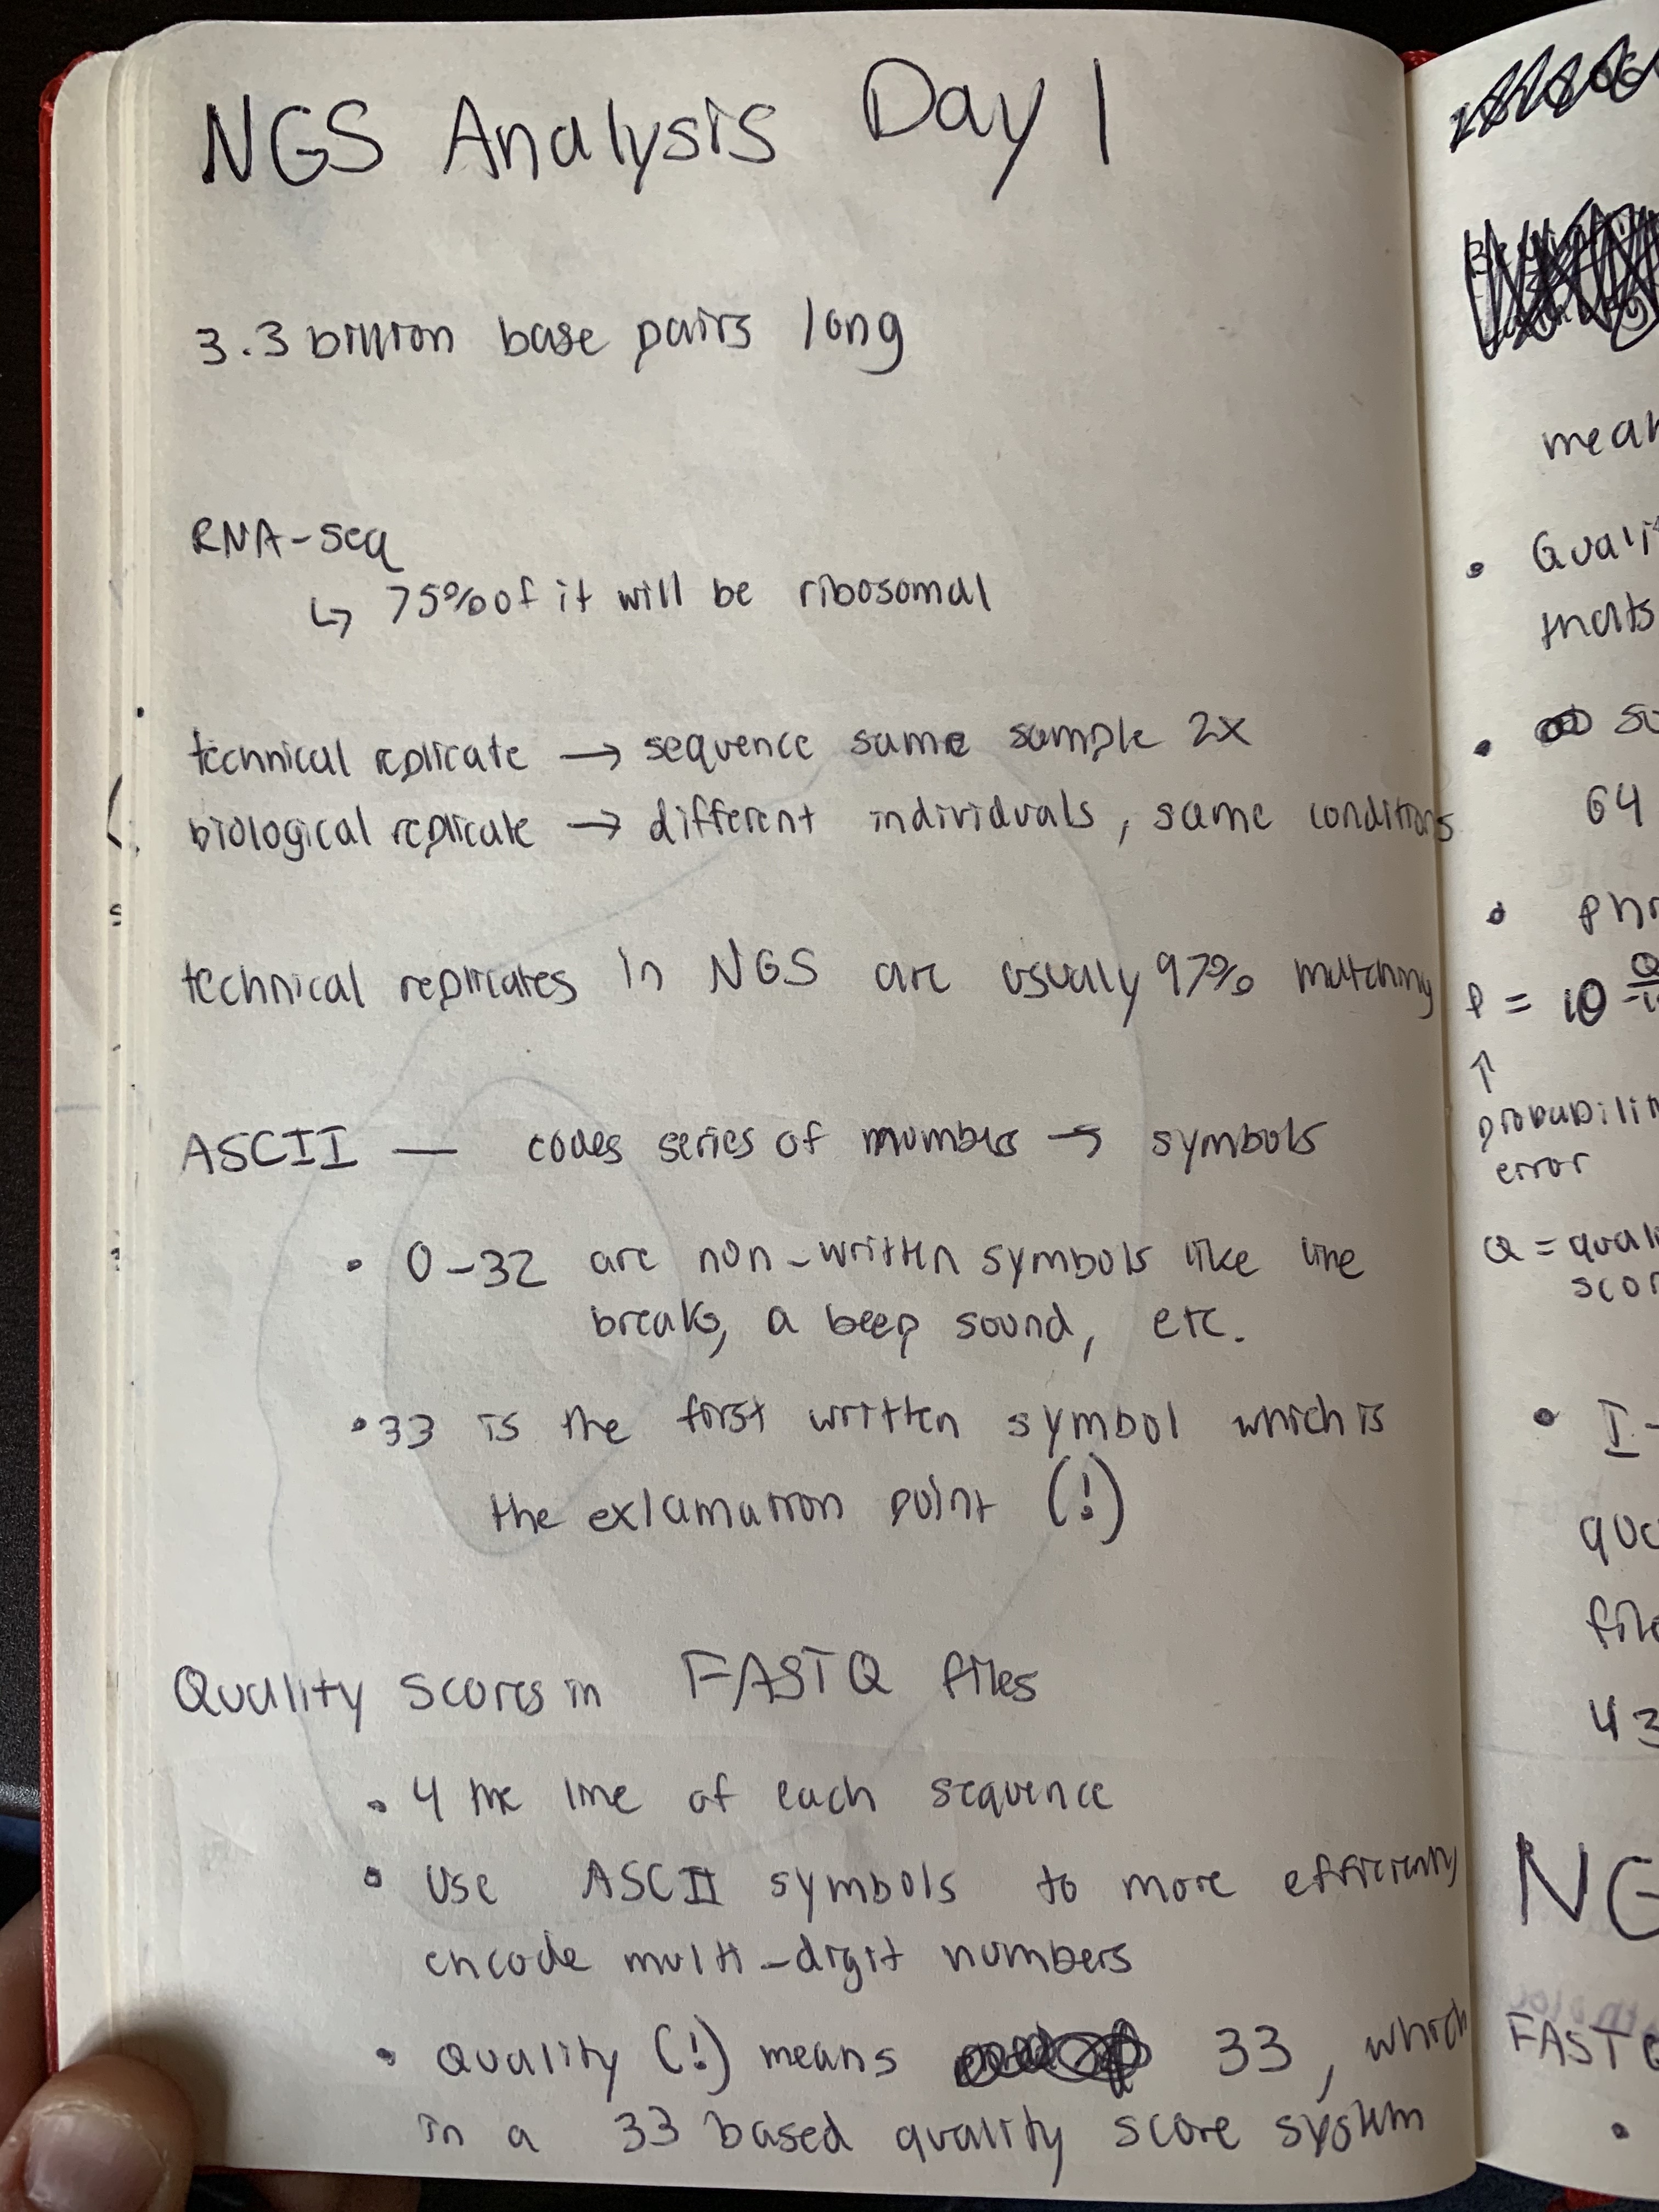 NGS Analysis Day 1
3.3 billion base pairs long
RNA-seq
↳ 75% of it will be ribosomal
technical replicate → sequence same sample 2x
biological replicate → different individuals, same conditions
technical replicates in NGS are usually 97% matching
ASCII — codes series of numbers → symbols
• 0-32 are non-written symbols like line
breaks, a beep sound, etc.
• 33 is the first written symbol which is
the exlamation point (!)
Quality scores in FASTQ files
• 4 the line of each sequence
• Use ASCII symbols to more efficiently
encode multi-digit numbers
• Quality (!) means 33, which
in a 33 based quality score system
mean
•
thats
•
64
•
P = 10
↑
error
Q =
• I
43
NG
FAST
•